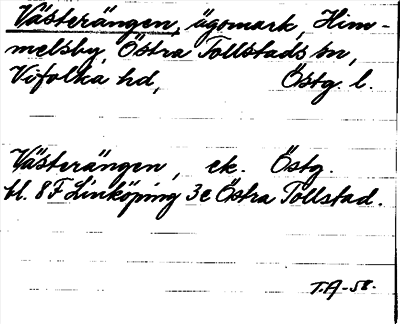 Västerängen, ägomark, Him-
melsby, Östra Tollstads sn,
Vifolka hd, Östg. l.
Västerängen, ek. Östg.
bl. 8F Linköping 3e Östra Tollstad.
T.A-58.